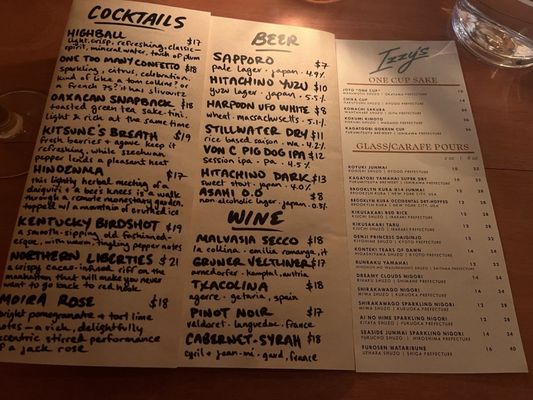 COCKTAILS
HIGHBALL $17
light, crisp, refreshing, classic -
spirit, mineral water, touch of plum
ONE TOO MANY CONFETTO $18
sparkling, citrus, celebration.
kind of like a tom collins? or
a french 75? it has slivovitz
OAXACAN SNAPBACK $18
toasted green tea sake-tini.
light & rich at the same time
KITSUNE'S BREATH $19
fresh berries + agave keep it
refreshing, while szechuan
pepper lends a pleasant heat
HINOZUMA $17
this lightly herbal meeting of a
daiquiri + a bee's knees is a walk
through a remote monastery garden,
topped w/ a mountain of
KENTUCKY BIRDSHOT $19
a smooth-sipping old fashioned-
esque, with warm, tingling pepper notes
NORTHERN LIBERTIES $21
a crispy cacao-infused riff on the
manhattan that will make you never
want to go back to red hook
MOIRA ROSE $18
bright pomegranate + tart lime
notes - a rich, delightfully
eccentric stirred performance
of a jack rose
BEER
SAPPORO $7
pale lager - japan - 4.9%
HITACHINO YUZU $10
yuzu lager - japan - 5.5%
HARPOON UFO WHITE $8
wheat - massachusetts - 5.1%
STILLWATER DRY $11
rice based saison - wa - 4.2%
VON C PIG DOG IPA $12
session ipa - pa - 4.5%
HITACHINO DARK $13
sweet stout - japan - 4.0%
ASAHI 0.0 $8
non alcoholic lager - japan - 0.0%
WINE
MALVASIA SECCO $18
la collina - emilia romagna, it
GRUNER VESTLINER $17
arndorfer - kamptal, austria
TXACOLINA $18
agerre - getaria, spain
PINOT NOIR $17
valdoret - languedoc, france
CABERNET-SYRAH $18
cyril + jean-mi - gard, france
Izzy's
ONE CUP SAKE
JOTO "ONE CUP"
CHIBA CUP
KONTEKI SAKURA
KOKUMI KIMOTO
KAGATOBI GOKKEN CUP
GLASS/CARAFE POURS
KOYUKI JUNMAI
KAGATORI YAMAHAI SUPER DRY
BROOKLYN KURA #14 JUNMAI
BROOKLYN KURA | NEW YORK CITY, USA
BROOKLYN KURA OCCIDENTAL DRY-HOPPED
BROOKLYN KURA | NEW YORK CITY, USA
KIKUSAKARI RED RICE
KIKUSAKARI TARU
GENJI PRINCESS DAIGINJO
KONTEKI TEARS OF DAWN
BUNRAKU YAMAHAI
DREAMY CLOUDS NIGORI
RIHAKU | SHIMANE PREFECTURE
SHIRAKAWAGO NIGORI
MIWA SHUZO | FUKUOKA PREFECTURE
SHIRAKAWAGO SPARKLING NIGORI
AI NO HIME SPARKLING NIGORI
KITAYA SHUZO | FUKUOKA PREFECTURE
SEASIDE JUNMAI SPARKLING NIGORI
FUROSEN WATARIBUNE
UEHARA SHUZO | SHIGA PREFECTURE